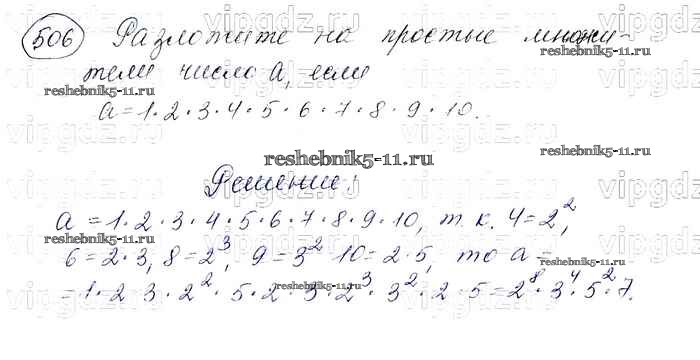 506 Разложите на простые множи-
тели число а, если
reshebnik5-11.ru
а = 1 · 2 · 3 · 4 · 5 · 6 · 7 · 8 · 9 · 10.
reshebnik5-11.ru
reshebnik5-11.ru
Решение:
а = 1 · 2 · 3 · 4 · 5 · 6 · 7 · 8 · 9 · 10, т. к. 4 = 2²,
reshebnik5-11.ru
6 = 2 · 3, 8 = 2³, 9 = 3² 10 = 2 · 5, то а =
= 1 · 2 · 3 · 2² · 5 · 2 · 3 · 2³ · 3² · 2 · 5 = 2⁸ · 3⁴ · 5² · 7.
reshebnik5-11.ru
reshebnik5-11.ru